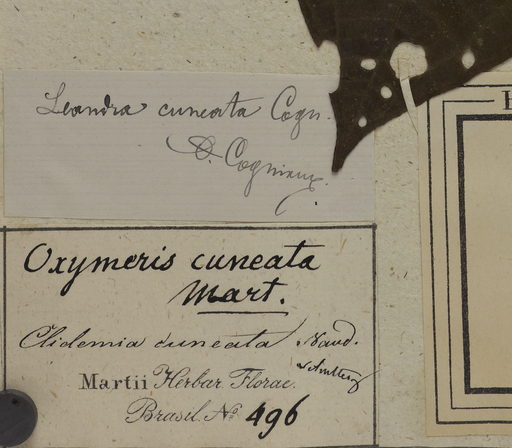 Leandra cuneata Cogn.
A. Cogniaux.
Oxymeris cuneata
Mart.
Clidemia cuneata Naud.
Martii Herbar. Florae
Brasil. No. 496